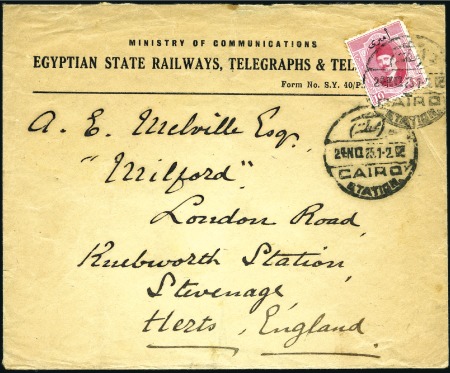 MINISTRY OF COMMUNICATIONS
EGYPTIAN STATE RAILWAYS, TELEGRAPHS & TEL
Form No. S.Y. 40/P.
10
CAIRO
STATION
A. E. Melville Esq.,
"Milford",
CAIRO
STATION
London Road,
Knebworth Station,
Stevenage,
Herts, England.